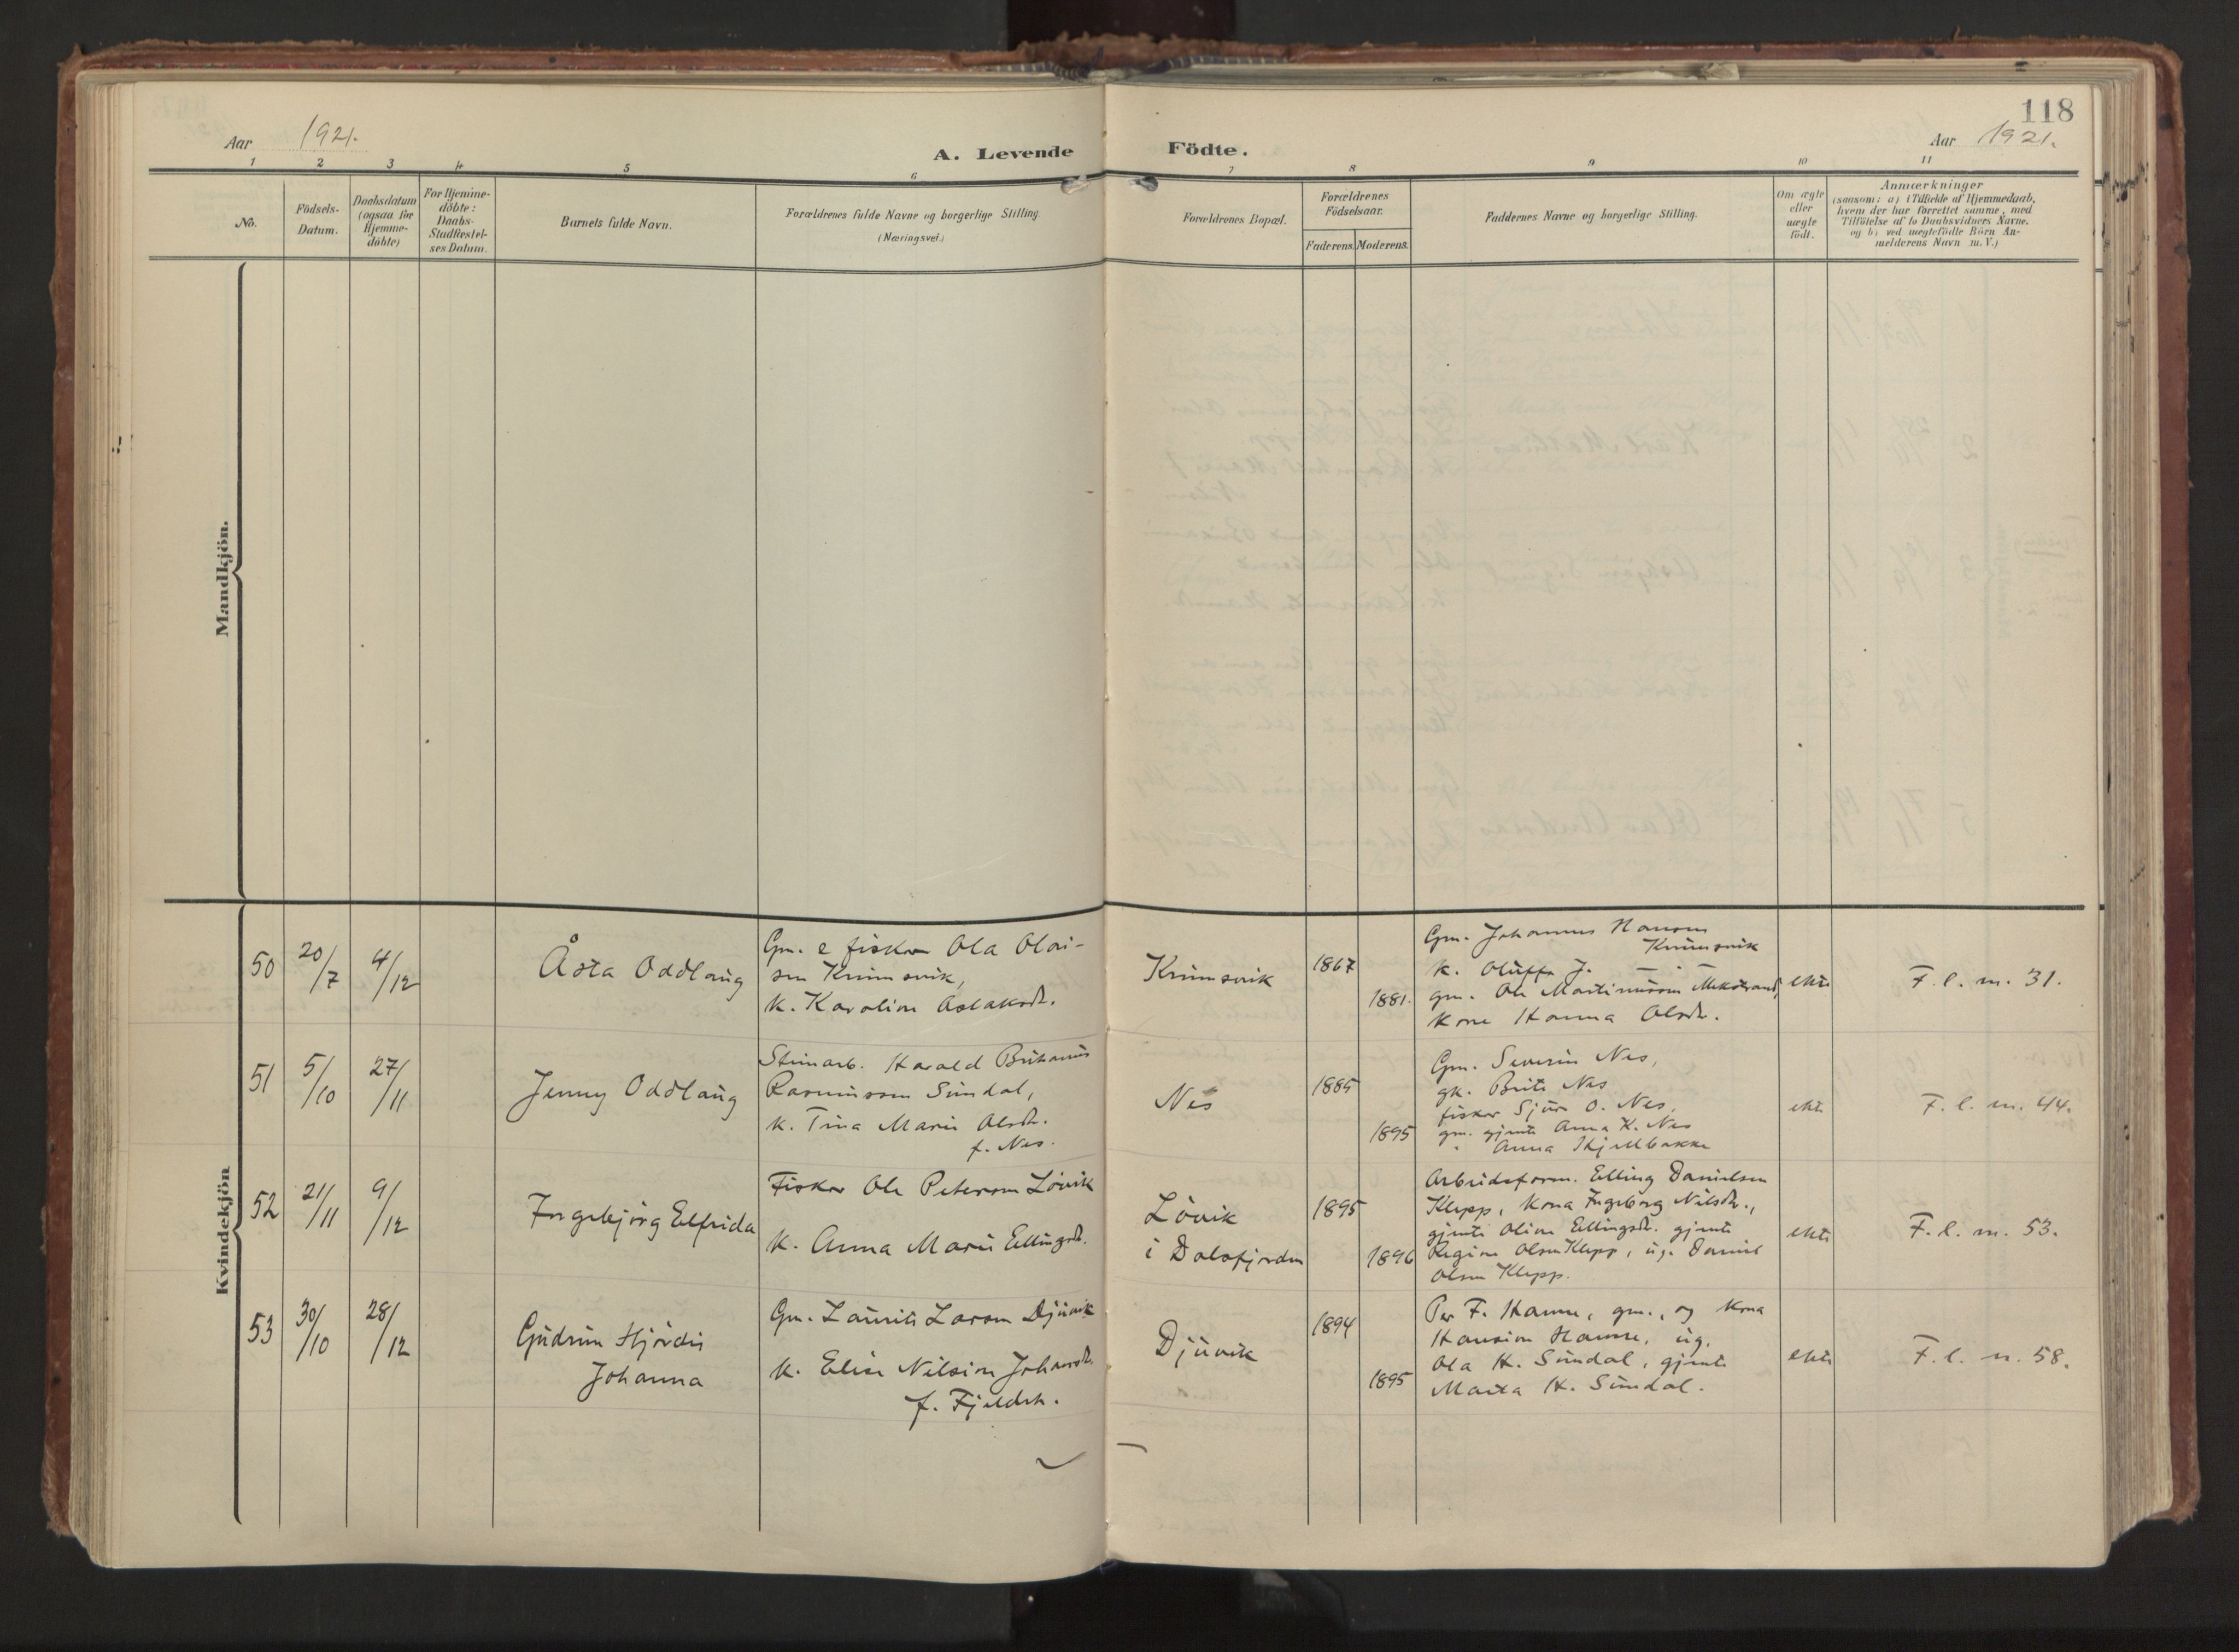 118
Aar 1921.
A. Levende Födte.
Aar 1921.
1 2 3 4 5 6 7 8 9 10 11
No.
Födsels-
Datum.
Daabsdatum
(ogsaa for
Hjemme-
döbte)
For Hjemme-
döbte:
Daabs-
Stadfæstel-
ses Datum.
Barnets fulde Navn.
Forældrenes fulde Navne og borgerlige Stilling
(Næringsvei.)
Forældrenes Bopæl.
Forældrenes
Födselsaar.
Faderens. Moderens.
Faddernes Navne og borgerlige Stilling.
Om ægte
eller
uægte
födt.
Anmærkninger
(saasom: a) i Tilfælde af Hjemmedaab,
hvem der har forrettet samme, med
Tilföielse af to Daabsvidners Navne.
og b) ved uægtefödte Börn An-
melderens Navn m. V.)
Mandkjön.
Kvindekjön
50
20/7
4/12
Åsta Oddlaug
Gm. e fisker Ola Olai-
sen Krumsvik,
k. Karoline Aslaksdr.
Krumsvik
1867
1881.
Gm. Johannes Hansen
Krumsvik
k. Oluffa J. — " —
gm. Ole Martinussen
Kone Hanna Olsdr.
ekte
F. l. n. 31.
51
5/10
27/11
Jenny Oddlaug
Steinarb. Harald
Rasmussen Sundal,
k. Tina Marie Olsdr.
f. Nes.
Nes
1885
1895
Gm. Severin Nes,
gk. Brite Nes
fisker Sjur O. Nes,
gm. gjente Anna K. Nes
" Anna
ekte
F. l. n. 44.
52
21/11
9/12
Ingebjörg Elfrida
Fisker Ole Petersen Lövik
k. Anna Marie Ellingsdr.
Lövik
i Dalsfjorden
1895
1896
Arbeidsform. Elling Danielsen
Klepp, Kona Ingeborg Nilsdr.,
gjente Oline Ellingsdr. gjente
Regine Olsen Klepp, ug. Daniel
Olsen Klepp.
ekte
F. l. n. 53.
53
30/10
28/12
Gudrun Hjördis
Johanna
Gm. Laurits Larsen Djuvik
k. Elise Nilsine Johansdr.
f.
Djuvik
1894
1895
Per F. Hamre, gm., og kona
Hansine Hamre, ug.
Ola H. Sundal, gjente
Marta H. Sundal.
ekte
F. l. n. 58.